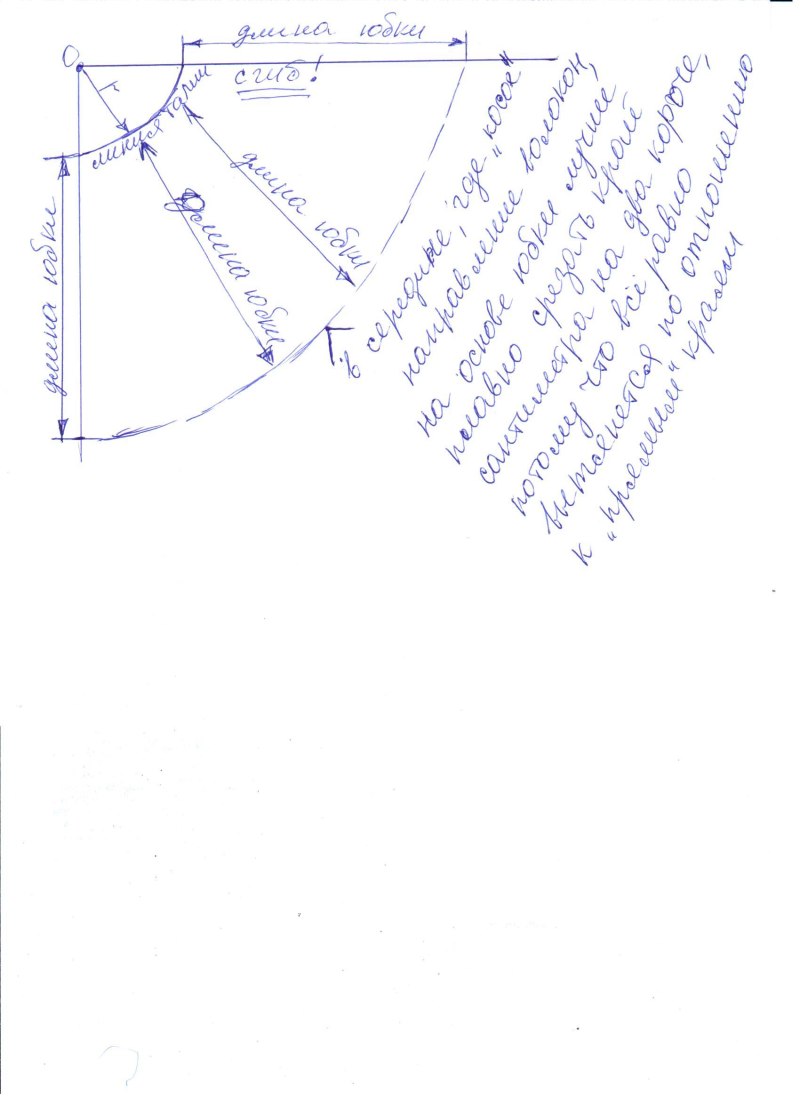 длина юбки
О
сгиб!
r
линия талии
длина юбки
длина юбки
длина юбки
в середине, где "косое"
направление волокон,
на основе юбки лучше
плавно срезать край
сантиметра на два короче,
потому что всё равно
вытянется по отношению
к "прямым" краям